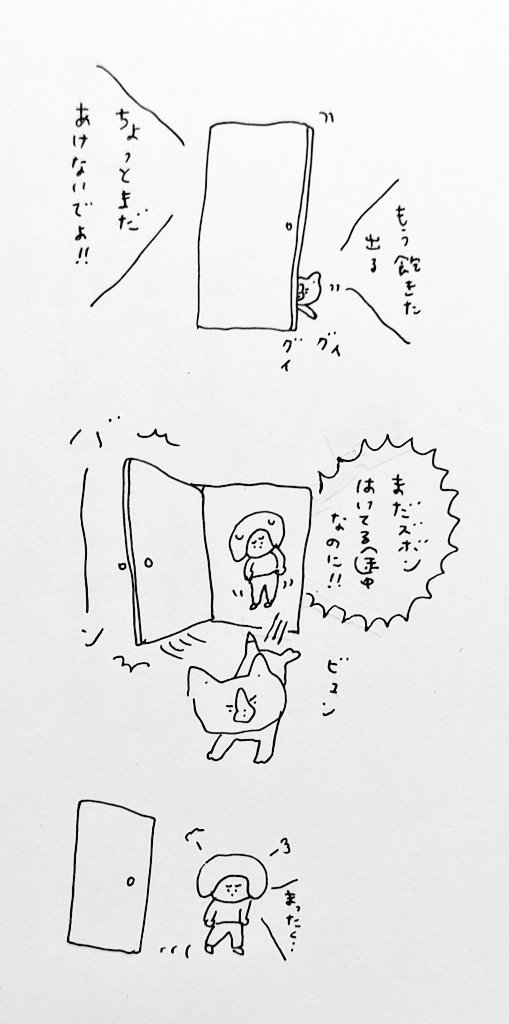 もう飽きた
出る
ちょっとまだ
あけないでよ!!
グイ
グイ
バーン
まだズボン
はいてる途中
なのに!!
ビュン
まったく…